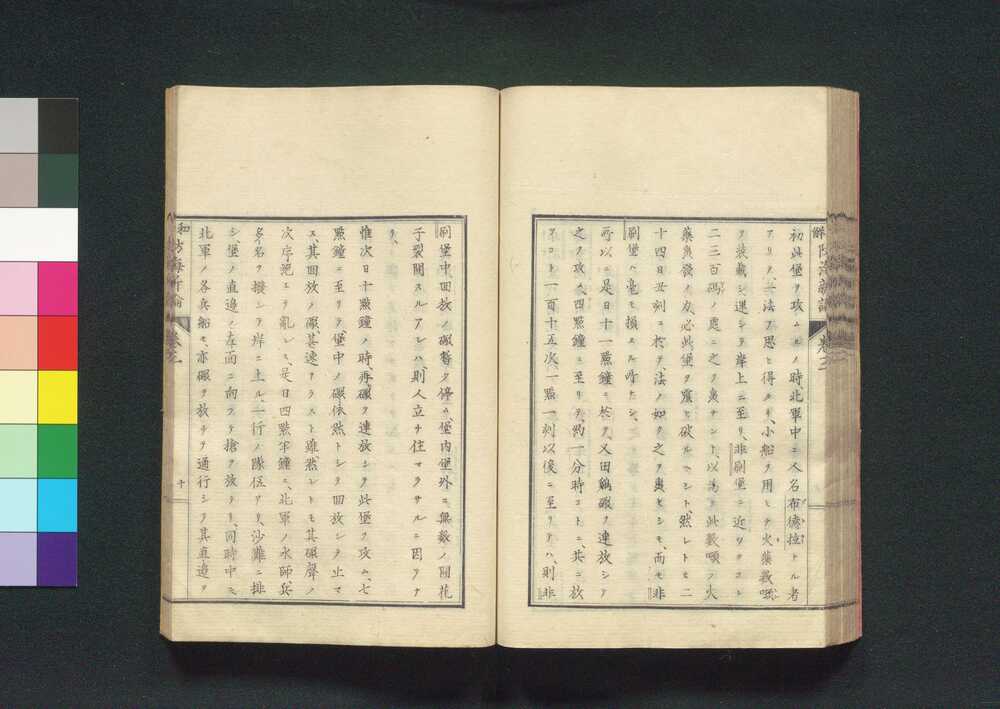 初此堡ヲ攻ムルノ時、北軍中ニ人名布德拉トル者
アリテ、一法ヲ思ヒ得ルニ、小船ヲ用ヒテ火藥數噸
ヲ裝載シ運シテ岸上ニ至リ、非嗣堡ニ近ツクコト
二三百碼ノ處ニ之ヲ轟サント、以為ラク此數噸ノ火
藥轟發ノ力必此堡ヲ震ヒ破ルベシト、然レトモ二
十四日丑刻ニ於テ法ノ如ク之ヲ轟ヒシモ、而モ非
嗣堡ハ毫モ損スル所ナシ、
所以ニ是日十一點鐘ニ於テ又田雞礮ヲ連放シテ
之ヲ攻ム、四點鐘ニ至リテ、約一分時コトニ、其ニ放
ツコト、一百十五次、一點一刻以後ニ至リテハ、則非
嗣堡中回放ノ礮暫ク停ム、堡内堡外ニ無數ノ開花
子裂開スルアレハ、則人立チ住マラサルニ因テナ
リ、
惟次日十點鐘ノ時、再礮ヲ連放シテ此堡ヲ攻ム、七
點鐘ニ至リテ、堡中ノ礮依然トシテ回放シテ止マ
ス、其回放ノ礮、甚速ナラスト雖、然レトモ其礮聲ノ
次序絶エテ亂レス、是日四點半鐘ニ、北軍ノ水師兵
多名ヲ撥シテ岸ニ上ル、一行ノ隊伍アリ、沙灘ニ排
シ、堡ノ直邊ノ左面ニ向フテ搶ヲ放ナリ、同時中ニ
北軍ノ各兵船モ、亦礮ヲ放チテ通行シテ其直邊ヲ
十